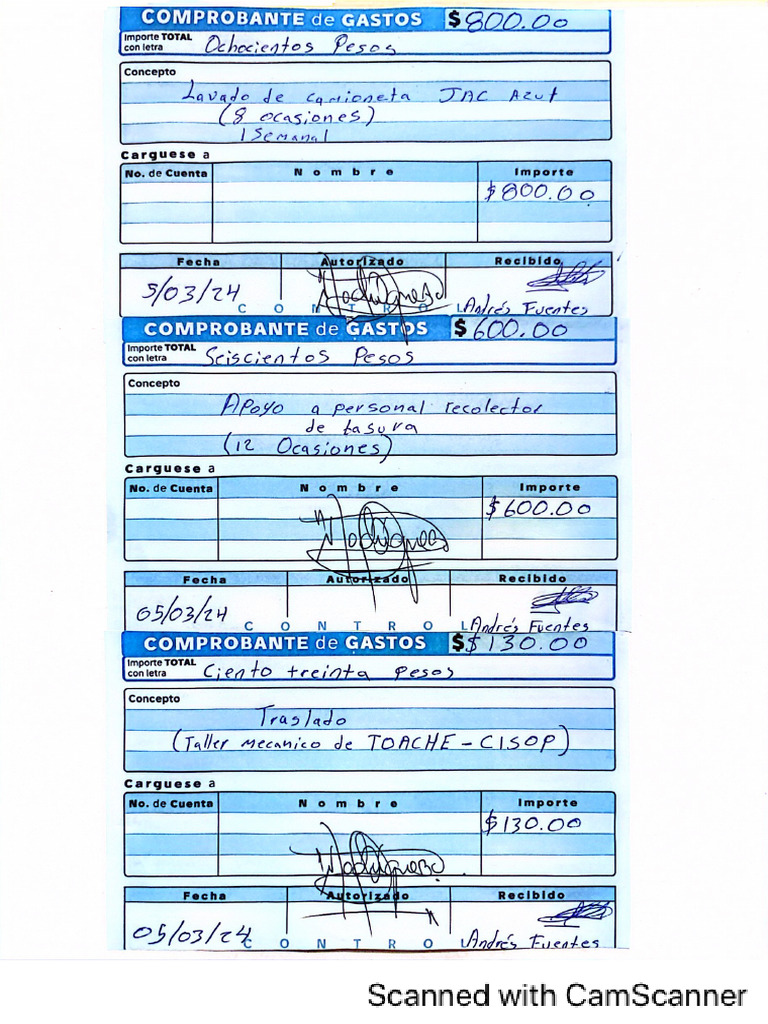 COMPROBANTE de GASTOS $ 800.00
Importe TOTAL con letra Ochocientos Pesos
Concepto
Lavado de camioneta JAC Azul
(8 ocasiones)
1 Semanal
Carguese a
No. de Cuenta Nombre Importe
$800.00
Fecha Autorizado Recibido
5/03/24
CONTROL Andrés Fuentes
COMPROBANTE de GASTOS $ 600.00
Importe TOTAL con letra Seiscientos Pesos
Concepto
Apoyo a personal recolector
de basura
(12 Ocasiones)
Carguese a
No. de Cuenta Nombre Importe
$600.00
Fecha Autorizado Recibido
05/03/24
CONTROL Andrés Fuentes
COMPROBANTE de GASTOS $$130.00
Importe TOTAL con letra Ciento treinta pesos
Concepto
Traslado
(Taller mecanico de TOACHE - CISOP)
Carguese a
No. de Cuenta Nombre Importe
$130.00
Fecha Autorizado Recibido
05/03/24
CONTROL Andrés Fuentes
Scanned with CamScanner